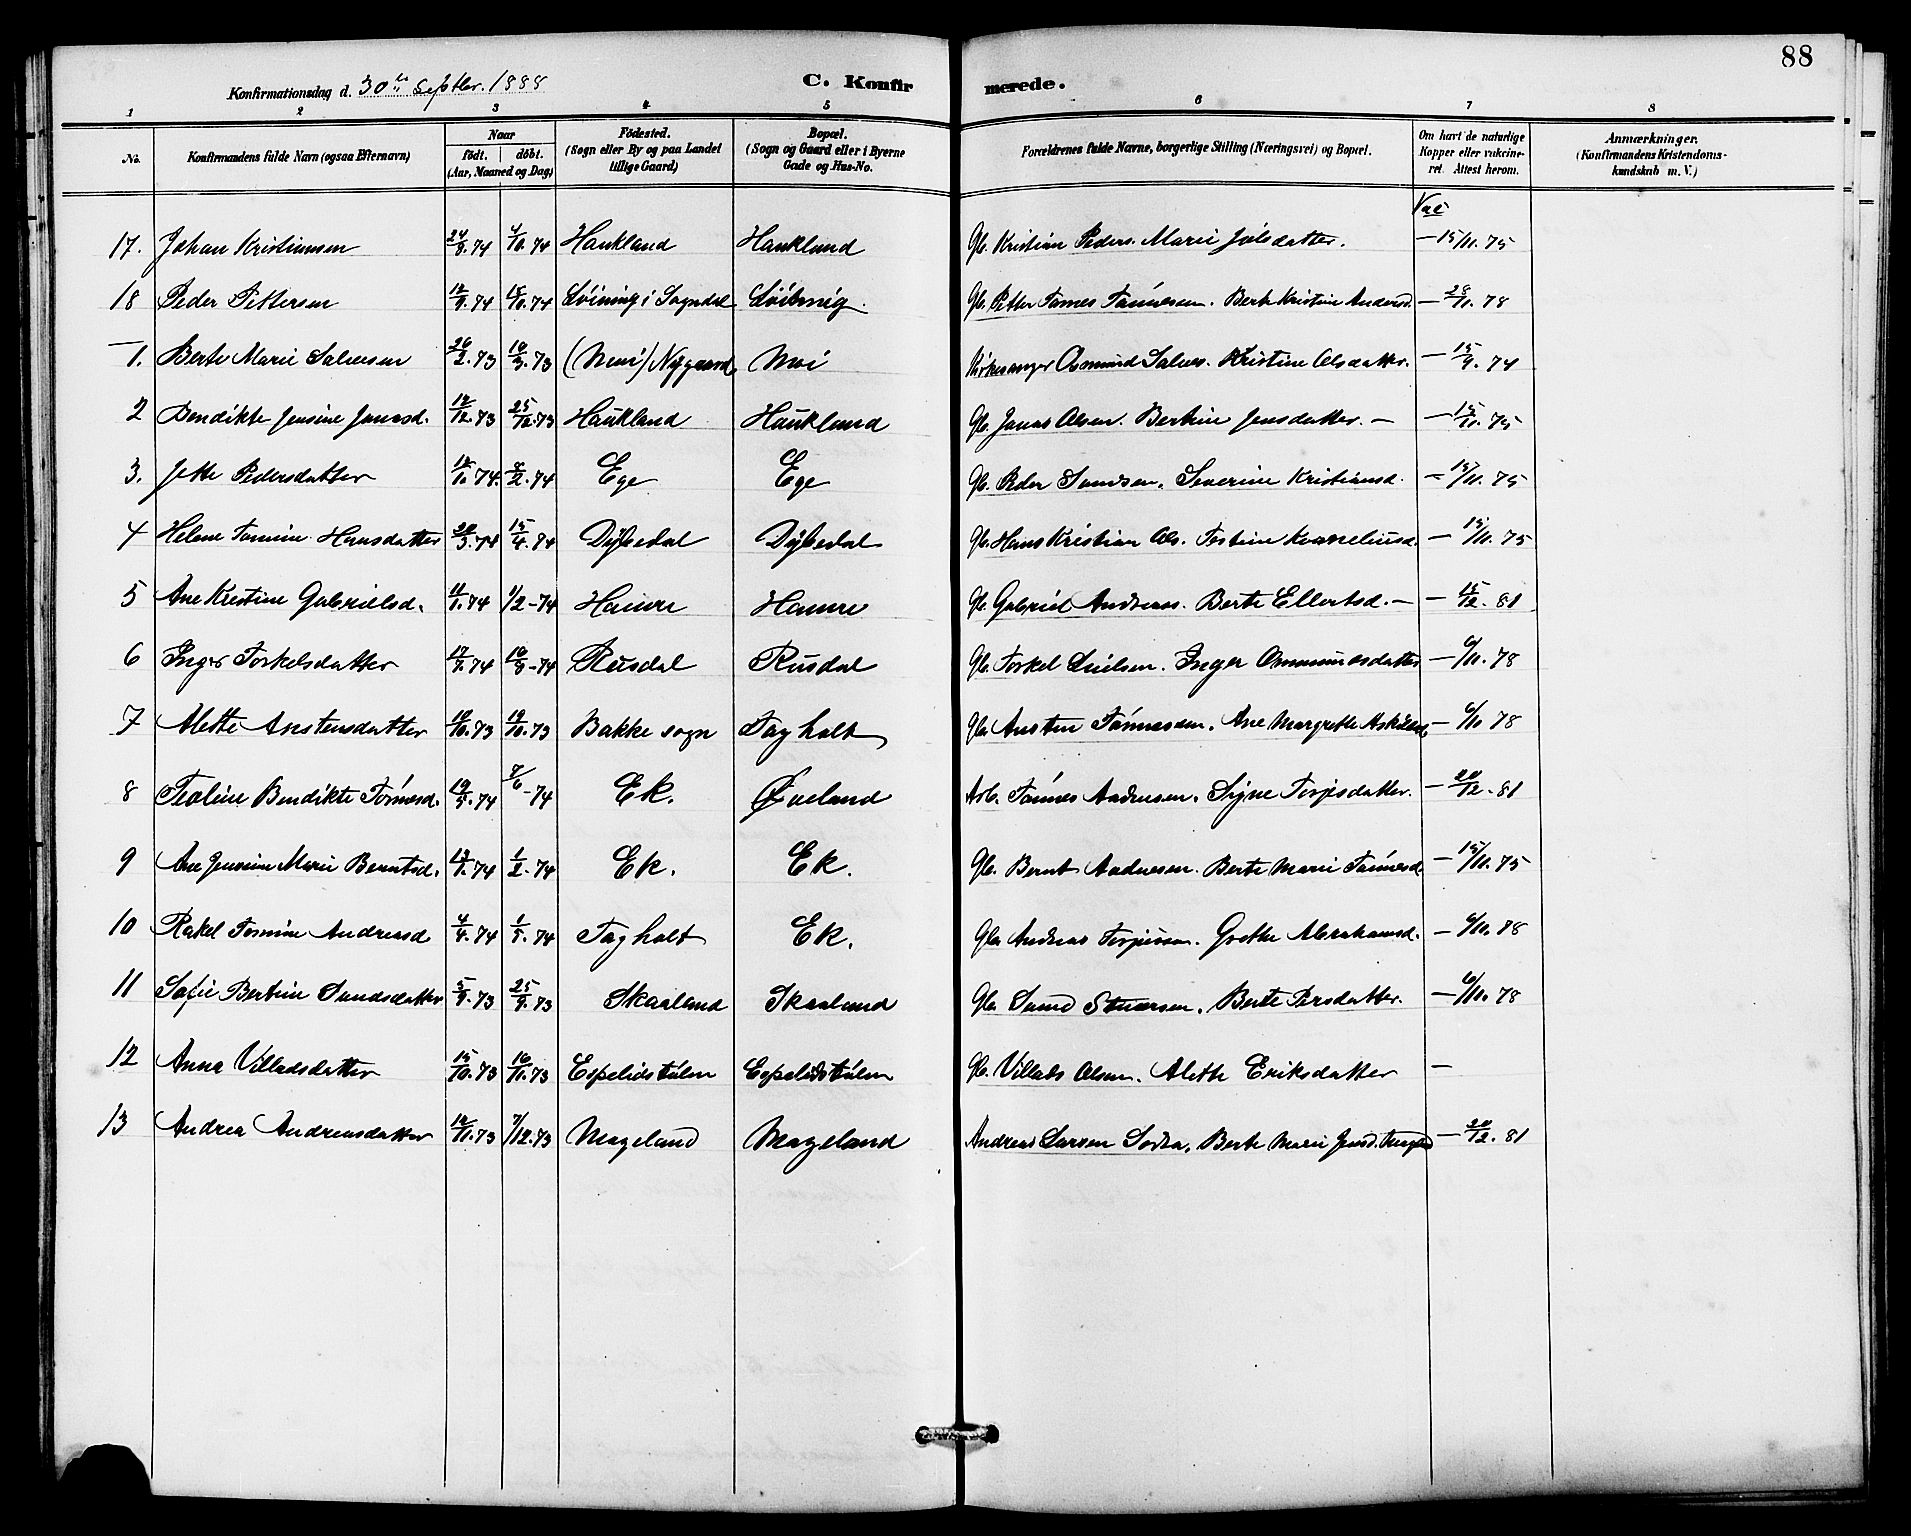 88
Konfirmationsdag d. 30te Septbr. 1888
C. Konfirmerede.
1 2 3 4 5 6 7 8
No. Konfirmandens fulde Navn (ogsaa Efternavn) Naar födt. döbt. (Aar, Maaned og Dag) Födested. (Sogn eller By og paa Landet tillige Gaard) Bopæl. (Sogn og Gaard eller i Byerne Gade og Hus-No. Forældrenes fulde Navne, borgerlige Stilling (Næringsvei) og Bopæl. Om havt de naturlige Kopper eller vakcineret. Attest herom. Anmærkninger. (Konfirmandens Kristendomskundskab m. V.)
Vac
17. Johan Kristiansen 24/8.74 4/10.74 Haukland Haukland Gb. Kristian Peders. Marie Joelsdatter. — 15/11.75
18 Peder Pettersen 12/9.74 18/10.74 Löining i Sogndal Gb. Petter Tønnesen. Berte Kristine Andersd. — 28/11.78
1. Berte Marie Salvesen 26/2.73 16/3.73 (Moi) Nygaard Moi Kirkesanger Osmund Salves. Kristine Olsdatter. — 15/9.74
2 Bendikte Jensine Jonasd. 12/12.73 25/12.73 Haukland Haukland Gb. Jonas Olsen. Bertine Jensdatter. — — 15/11.75
3. Jette Pedersdatter 12/1.74. 8/2.74 Ege Ege Gb. Peder Svendsen. Severine Kristiansd. — 15/11.75
4 Helene Tomine Hansdatter 20/3.74 15/4.74 Dybedal Dybedal Gb. Hans Kristian Ols. Tostine Korneliusd. — 15/11.75
5 Ane Kristine Gabrielsd. 11/1.74 1/2-74 Haavre Haavre Gb. Gabriel Andreas. Berte Ellertsd. — — 15/12.81
6 Inger Torkelsdatter 17/7.74 16/9-74 Rusdal Rusdal Gb. Torkel Nielsen. Inger Osmundsdatter — 6/11.78
7 Alette Anstensdatter 10/10.73 19/10.73 Bakke sogn Tagholt Gb. Ansten Tönnesen. Ane Margrethe Askilds. — 6/11.78
8 Teoline Bendikte Tönnesd. 19/5.74 7/6-74 Ek. Øveland Arb. Tönnes Andersen. Signe Torjesdatter. — 20/12.81
9 Ane Jensine Marie Berntsd. 13/1.74 1/2.74 Ek. Ek. Gb. Bernt Andersen. Berte Marie Tönnesd. — 15/11.75
10 Rakel Tomine Andreasd. 4/4.74 1/5.74 Tagholt Ek. Gb. Andreas Torjussen. Grethe Abrahamsd. — 6/11.78
11 Sofie Bertine Svendsdatter 5/9.73 25/9.73 Skaaland Skaaland Gb. Svend Syversen. Berte Persdatter. — 6/11.78
12 Anna Villadsdatter 15/10.73 16/11.73 Espelidstölen Espelidstölen Gb. Villads Olsen. Alette Eriksdatter —
13 Andrea Andreasdatter 12/11.73 7/12.73 Mageland Mageland Andreas Larsen Berte Marie Jensd. — 20/12.81